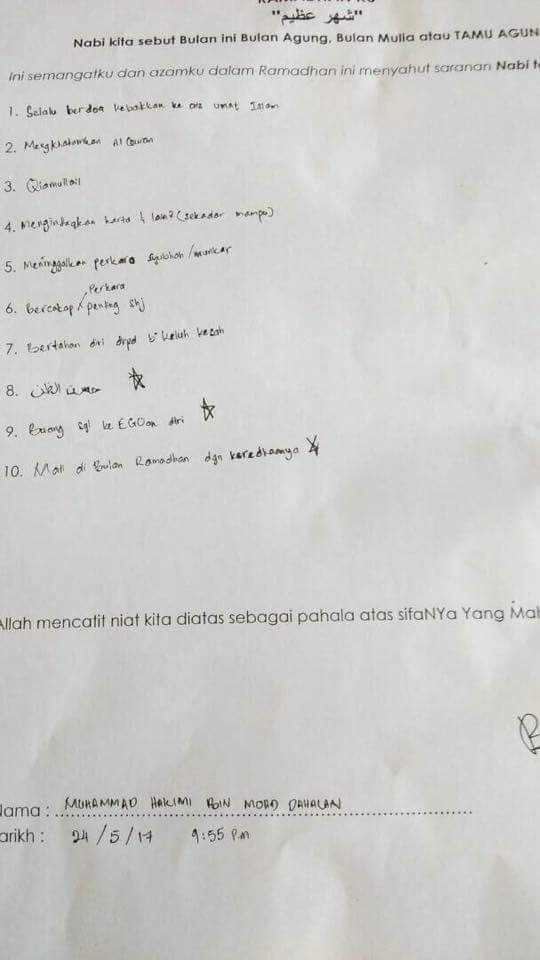 "شهر عظيم"
Nabi kita sebut Bulan ini Bulan Agung, Bulan Mulia atau TAMU AGUN
Ini semangatku dan azamku dalam Ramadhan ini menyahut saranan Nabi
1. Selalu berdoa kebaikkan ke atas umat Islam
2. Mengkhatamkan Al Quran
3. Qiamullail
4. Menginfaqkan harta & lain2 (sekadar mampu)
5. Meninggalkan perkara syubhah/munkar
Perkara
6. Bercakap penting shj
7. Bertahan diri drpd b'keluh kesah
8. حسن الظن
9. Buang sgl ke EGOan diri
10. Mati di Bulan Ramadhan dgn keredhaannya
Allah mencatit niat kita diatas sebagai pahala atas sifaNYa Yang Mah
Nama : MUHAMMAD HAKIMI BIN MOHD DAHALAN
arikh : 24/5/17 9:55 P.M